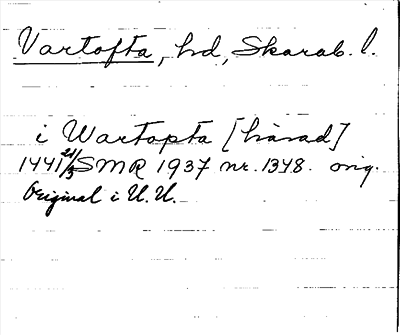 Vartofta, hd, Skarab. l.
i Wartopta [härad]
1441 21/3 SMR 1937 nr. 1348. orig.
Original i U. U.